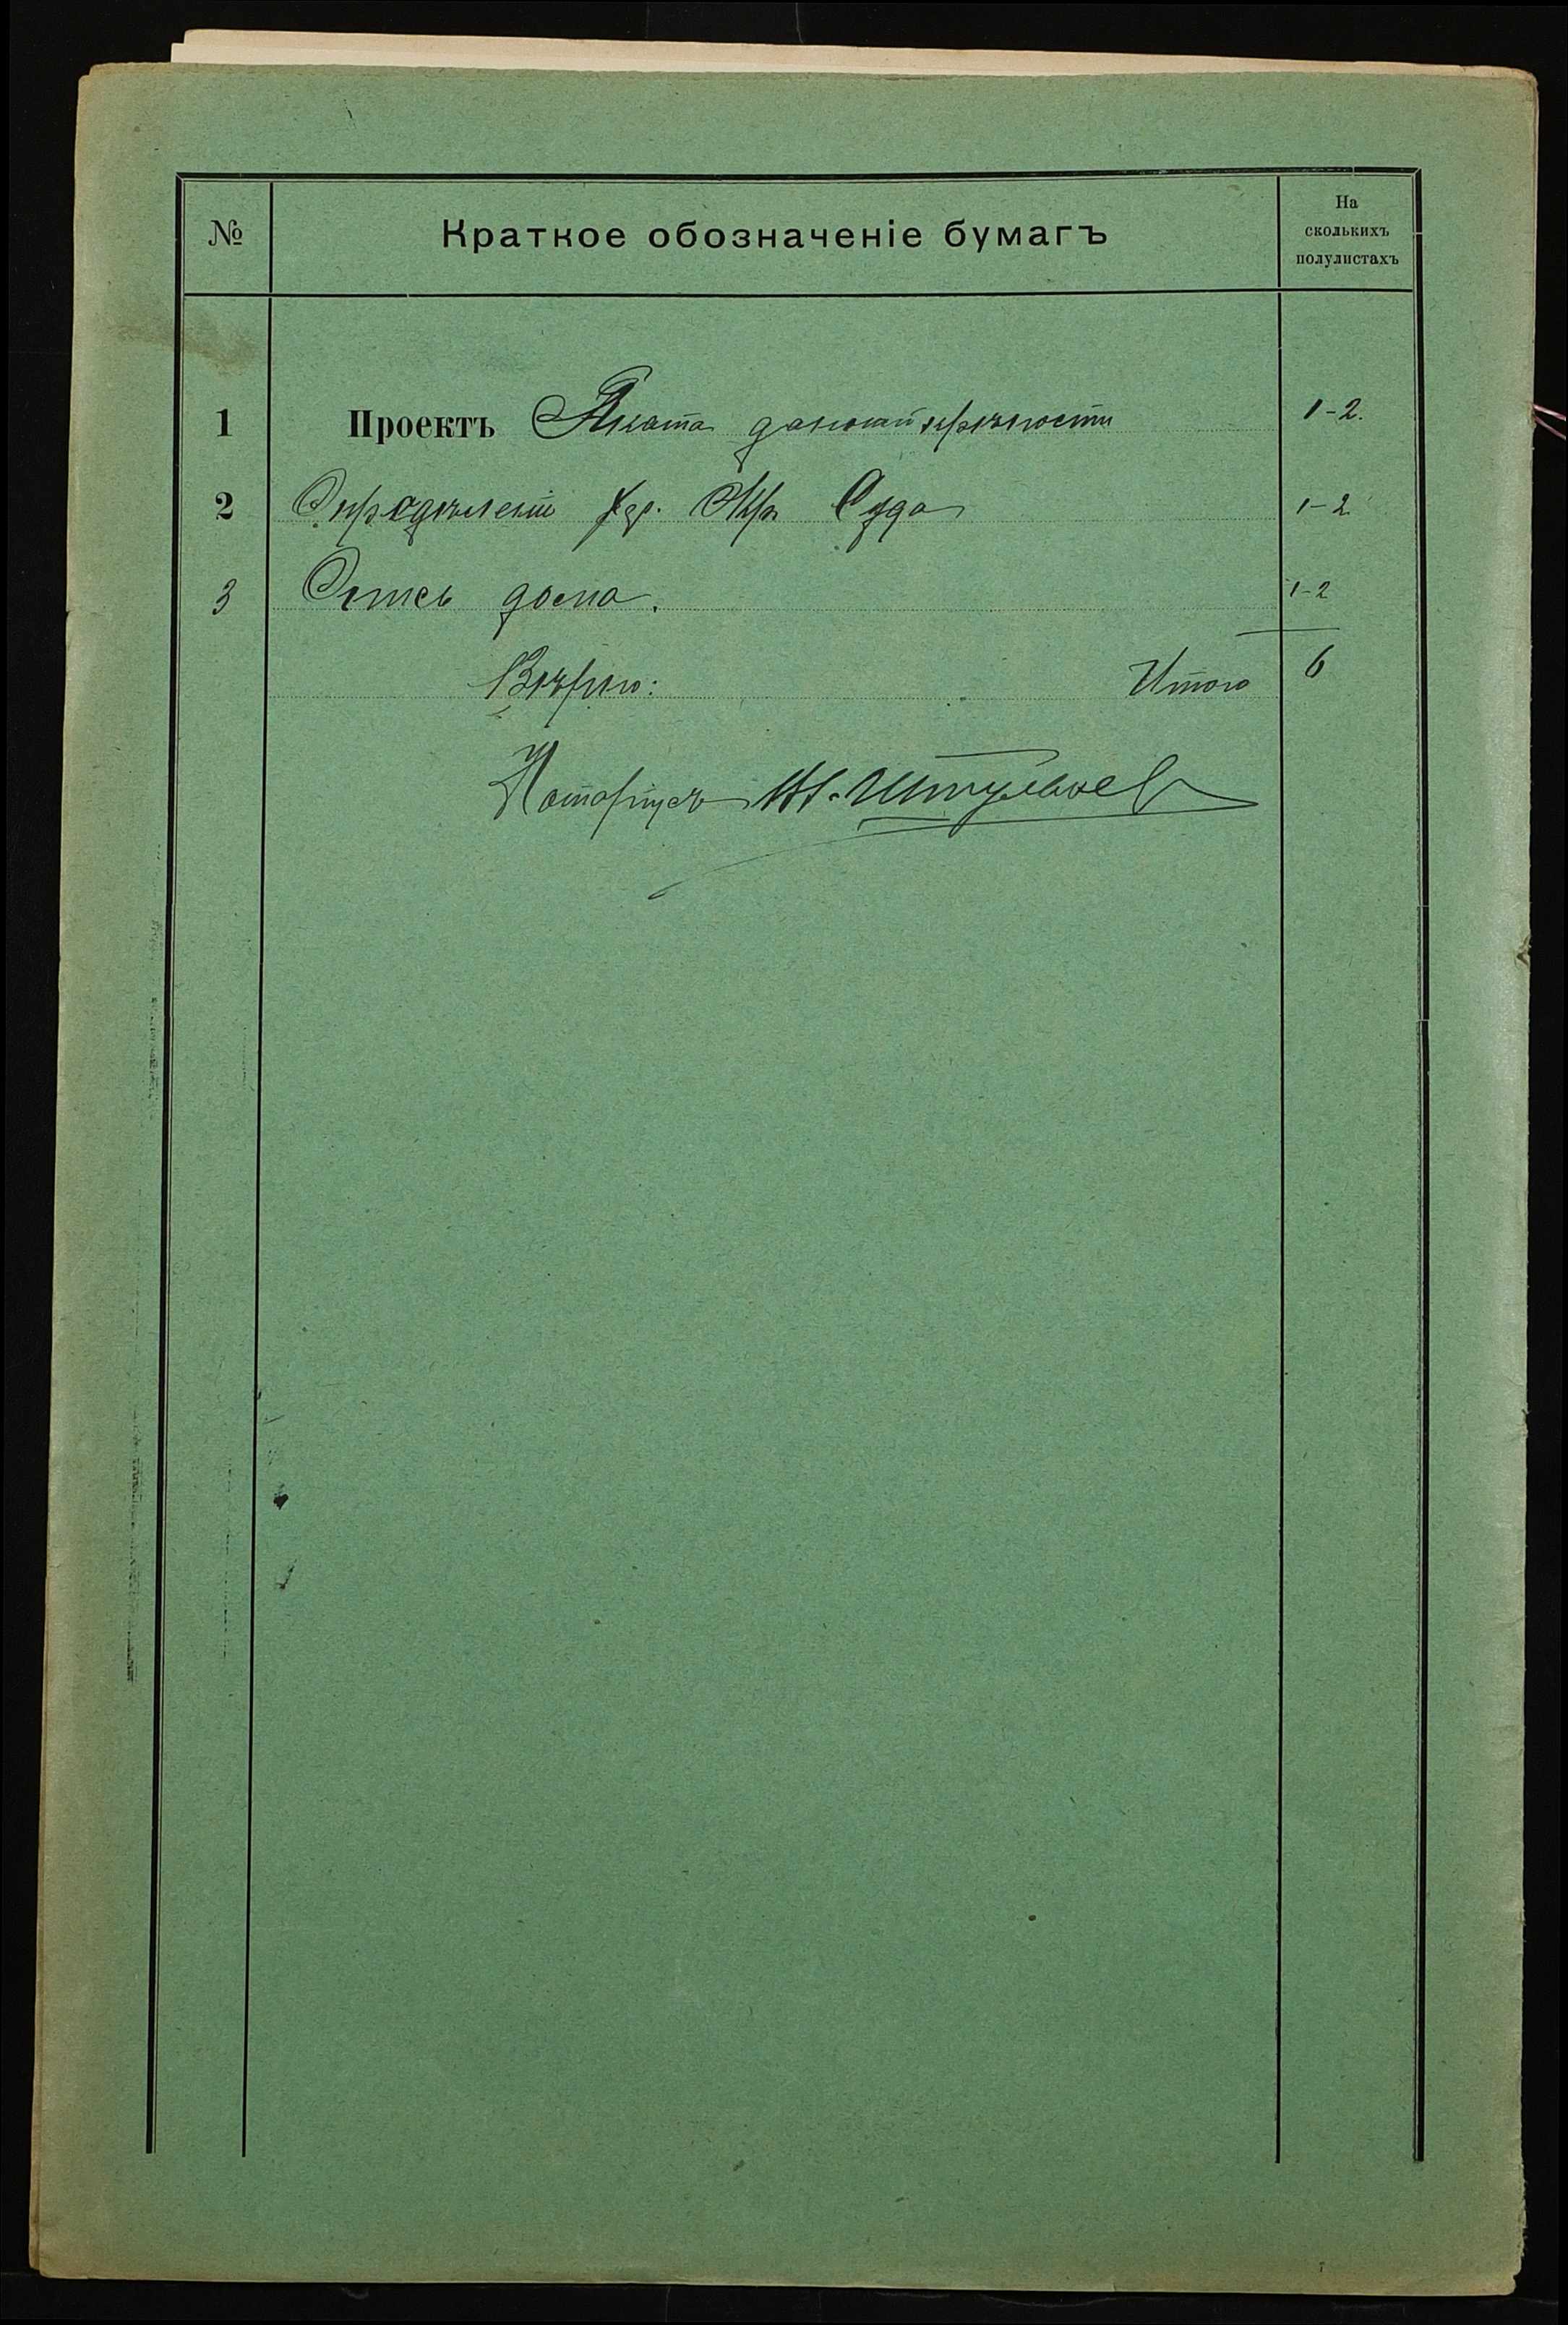 №
Краткое обозначеніе бумагъ
На
сколькихъ
полулистахъ
1 Проектъ Акта данной крѣпости 1-2.
2 Опредѣленіе Окр Суда 1-2
3 Опись дома. 1-2
Вѣрно: Итого 6
Нотаріусъ